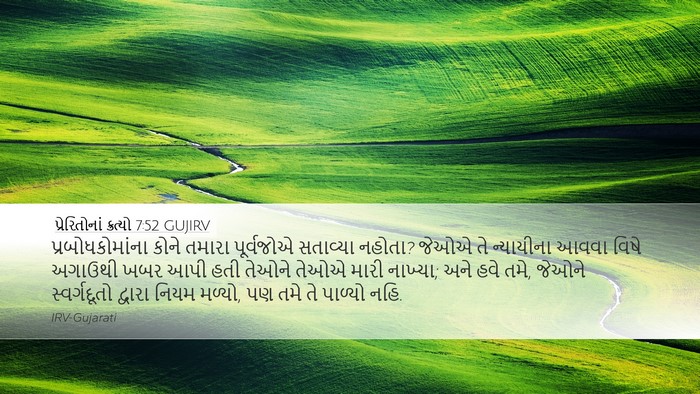 પ્રેરિતોનાં કૃત્યો 7:52 GUJIRV
પ્રબોધકોમાંના કોને તમારા પૂર્વજોએ સતાવ્યા નહોતા? જેઓએ તે ન્યાયીના આવવા વિષે
અગાઉથી ખબર આપી હતી તેઓને તેઓએ મારી નાખ્યા; અને હવે તમે, જેઓને
સ્વર્ગદૂતો દ્વારા નિયમ મળ્યો, પણ તમે તે પાળ્યો નહિ.
IRV-Gujarati